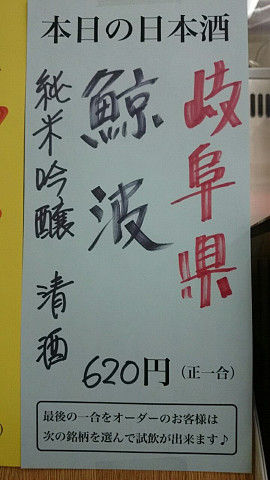 本日の日本酒
岐阜県
鯨波
純米吟醸 清酒
620円(正一合)
最後の一合をオーダーのお客様は
次の銘柄を選んで試飲が出来ます♪